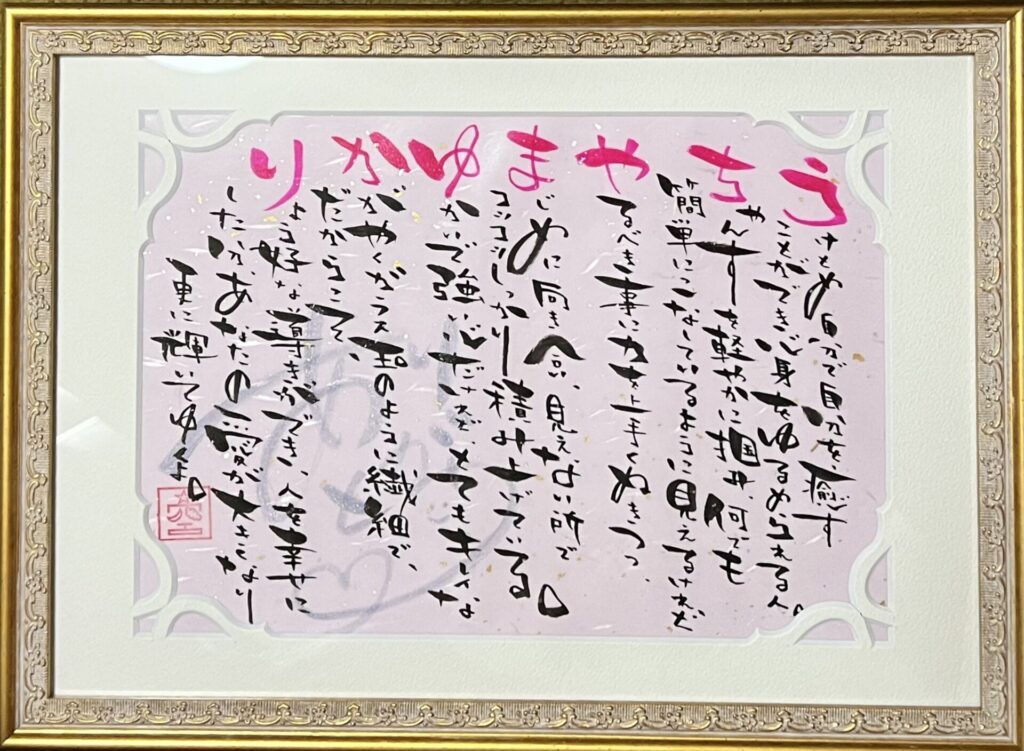 うちやまゆかり
けとめ自分で自分を癒す
ことができ心身をゆるめられる人。
ゃんすを軽やかに掴み、何でも
簡単にこなしているように見えるけれど
るべき事に力を上手くぬきつつ、
じめに向き合い、見えない所で
コツコツしっかり積み上げている。
かいで強い心だけれど、とてもキレイな
がやくガラス玉のように繊細で、
だからこそ、
ょう好な導きができ、人を幸せに
したい、あなたの愛が大きくなり
更に輝いてゆくよ。